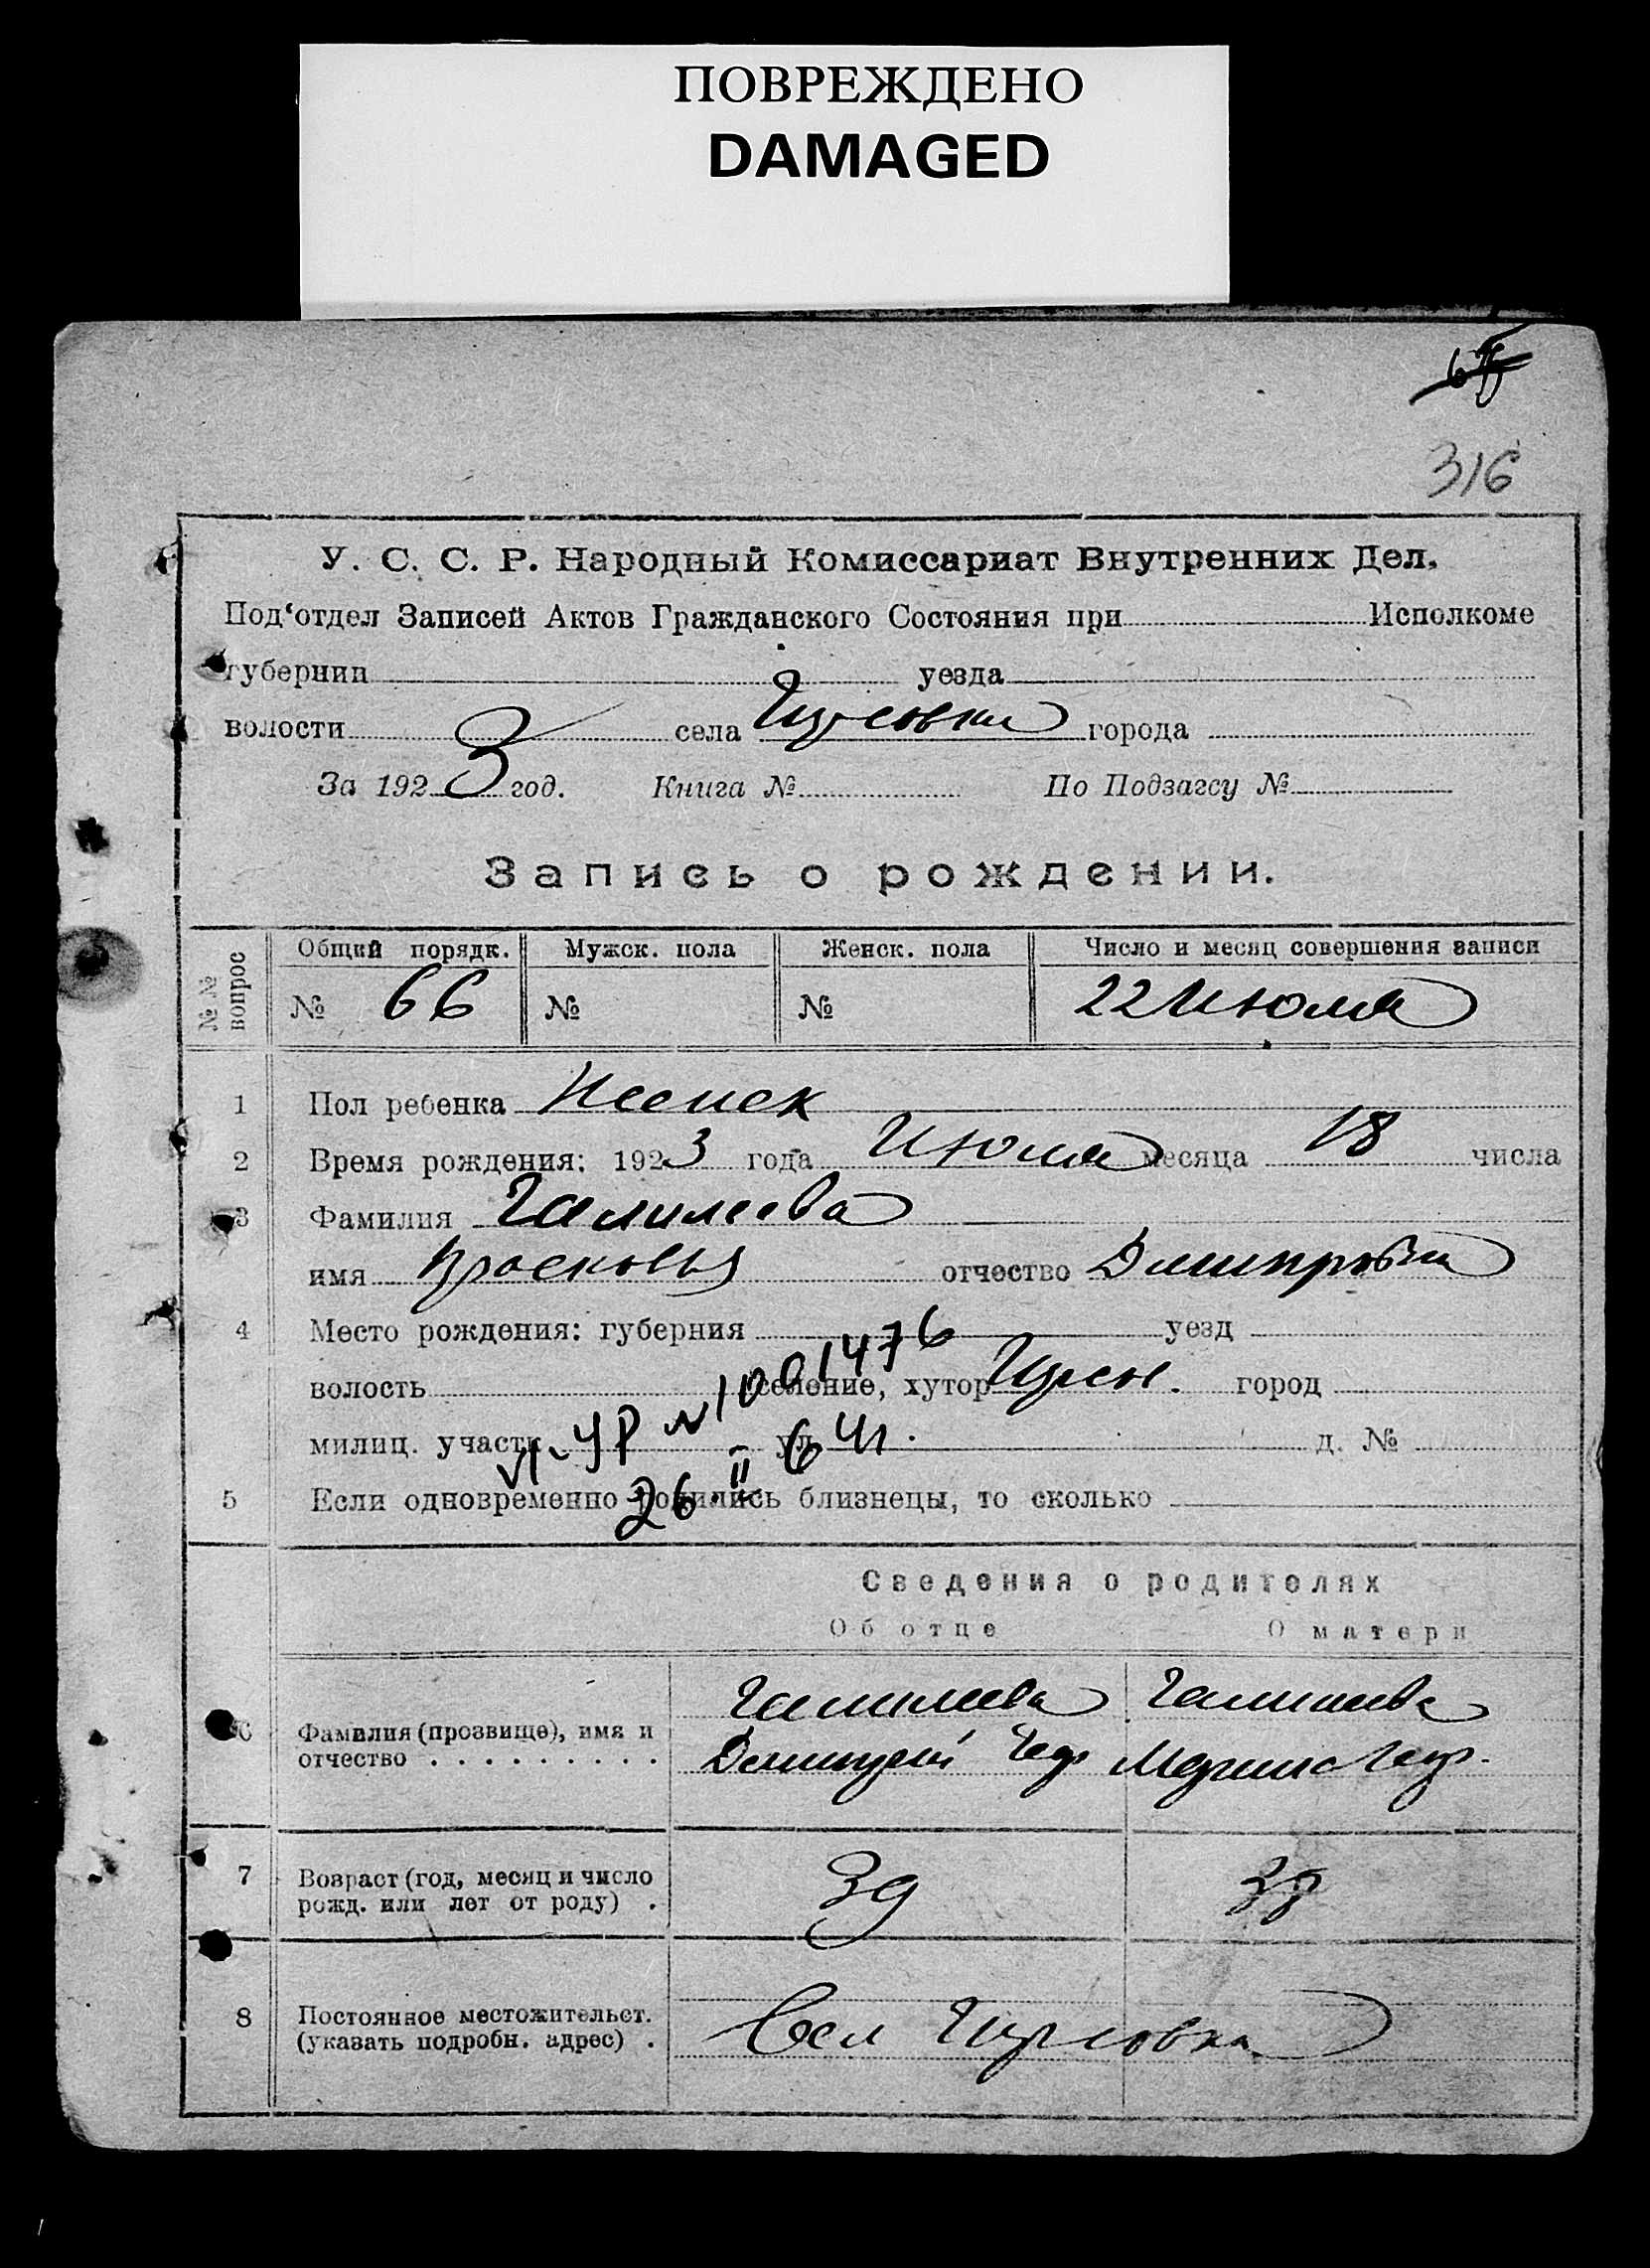 ПОВРЕЖДЕНО
DAMAGED
316
У. С. С. Р. Народный Комиссариат Внутренних Дел.
Под‘отдел Записей Актов Гражданского Состояния при Исполкоме
губернии уезда
волости села города
За 1923 год. Книга № По Подзагсу №
Запись о рождении.
№ № вопрос
Общий порядк. Мужск. пола Женск. пола Число и месяц совершения записи
№ 66 № № 22 Июля
1 Пол ребенка Женск
2 Время рождения: 1923 года Июля месяца 18 числа
3 Фамилия Галилеева
имя Прасковья отчество Дмитровна
4 Место рождения: губерния уезд
волость селение, хутор город
№ 1001476
милиц. участк. ул. д. №
26. II 64 г.
5 Если одновременно родились близнецы, то сколько
Сведения о родителях
Об отце О матери
6 Фамилия (прозвище), имя и отчество
Галилеева Галилеева
Дмитрий
7 Возраст (год, месяц и число рожд. или лет от роду) . 39 38
8 Постоянное местожительст. (указать подробн. адрес) .